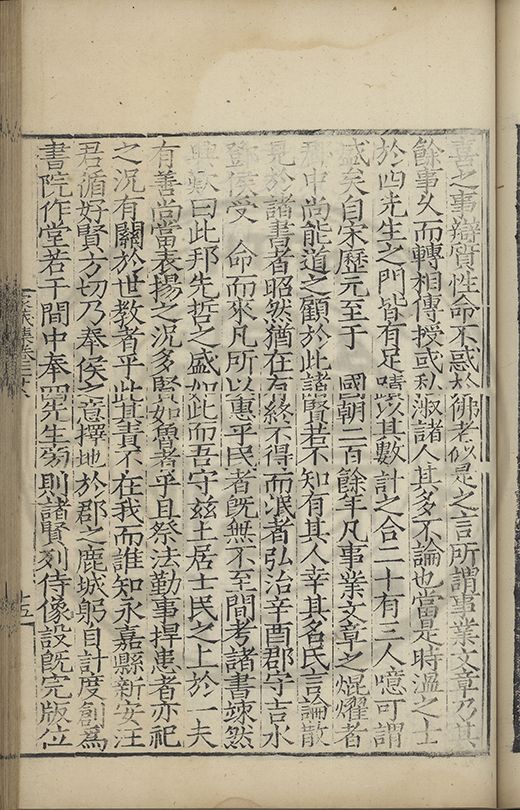 喜之事辯質性命不惑於佛老似是之言所謂事業文章乃其
餘事久而轉相傳授或私淑諸人其多不論也當是時溫之士
於四先生之門皆有足蹟以其數計之合二十有三人噫可謂
盛矣自宋歷元至于 國朝二百餘年凡事業文章之焜燿者
郷中尚能道之顧於此諸賢若不知有其人幸其名氏言論散
見於諸書者昭然猶在有終不得而泯者弘治辛酉郡守吉水
鄧侯受 命而來凡所以惠乎民者旣無不至間考諸書竦然
興歎曰此邦先哲之盛如此而吾守兹土居士民之上於一夫
有善尚當表揚之况多賢如魯者乎且祭法勤事捍患者亦祀
之况有關於世教者乎此其責不在我而誰知永嘉縣新安汪
君循好賢方切乃奉侯之意擇地於郡之鹿城躬自計度創爲
書院作堂若干間中奉四先生旁則諸賢列侍像設旣完版位
集卷三
十五